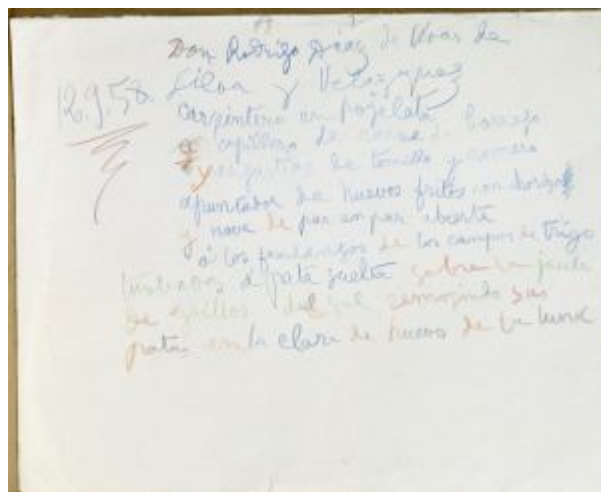 Don Rodrigo Díaz de Vivar de
12.9.58. Silva y Velazquez
carpintero en hojalata
capillero de carne de borrego
y de tomillo y romero
apuntador de huevos fritos con chorizo
y nave de par en par abierta
á los fandangos de los campos de trigo
a pata suelta sobre la jaula
de grillos del sol remojando sus
patas en la clara de huevos de la luna